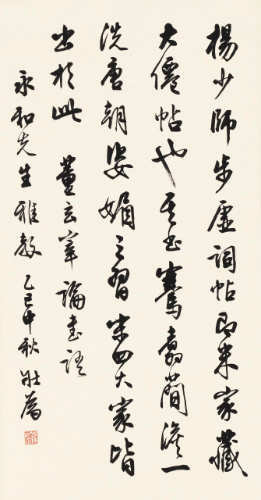 楊少師步虛詞帖即米家藏
大僊帖也其書騫翥蕳澹一
洗唐朝姿媚之習宋四大家皆
出於此 董玄宰論書語
永和先生雅教 乙巳中秋 壯為